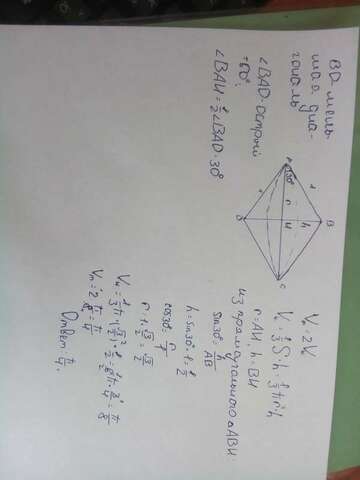 BD мень
шая диа-
гональ
∠BAD-острый
=60°;
∠BAH=½∠BAD=30°
A
30°
1
B
r
h
H
1
D
C
Vₙ=2Vₖ
Vₖ=⅓S·h=⅓πr²h
r=AH, h=BH
из прямоугольного △ABH:
sin30°=h/AB
h=sin30°·1=½
cos30°=r/1
r=1·√3/2=√3/2
Vₖ=⅓π·(√3/2)²·½=⅙π·¾=π/8
Vₙ=2·π/8=π/4
Ответ: π/4.